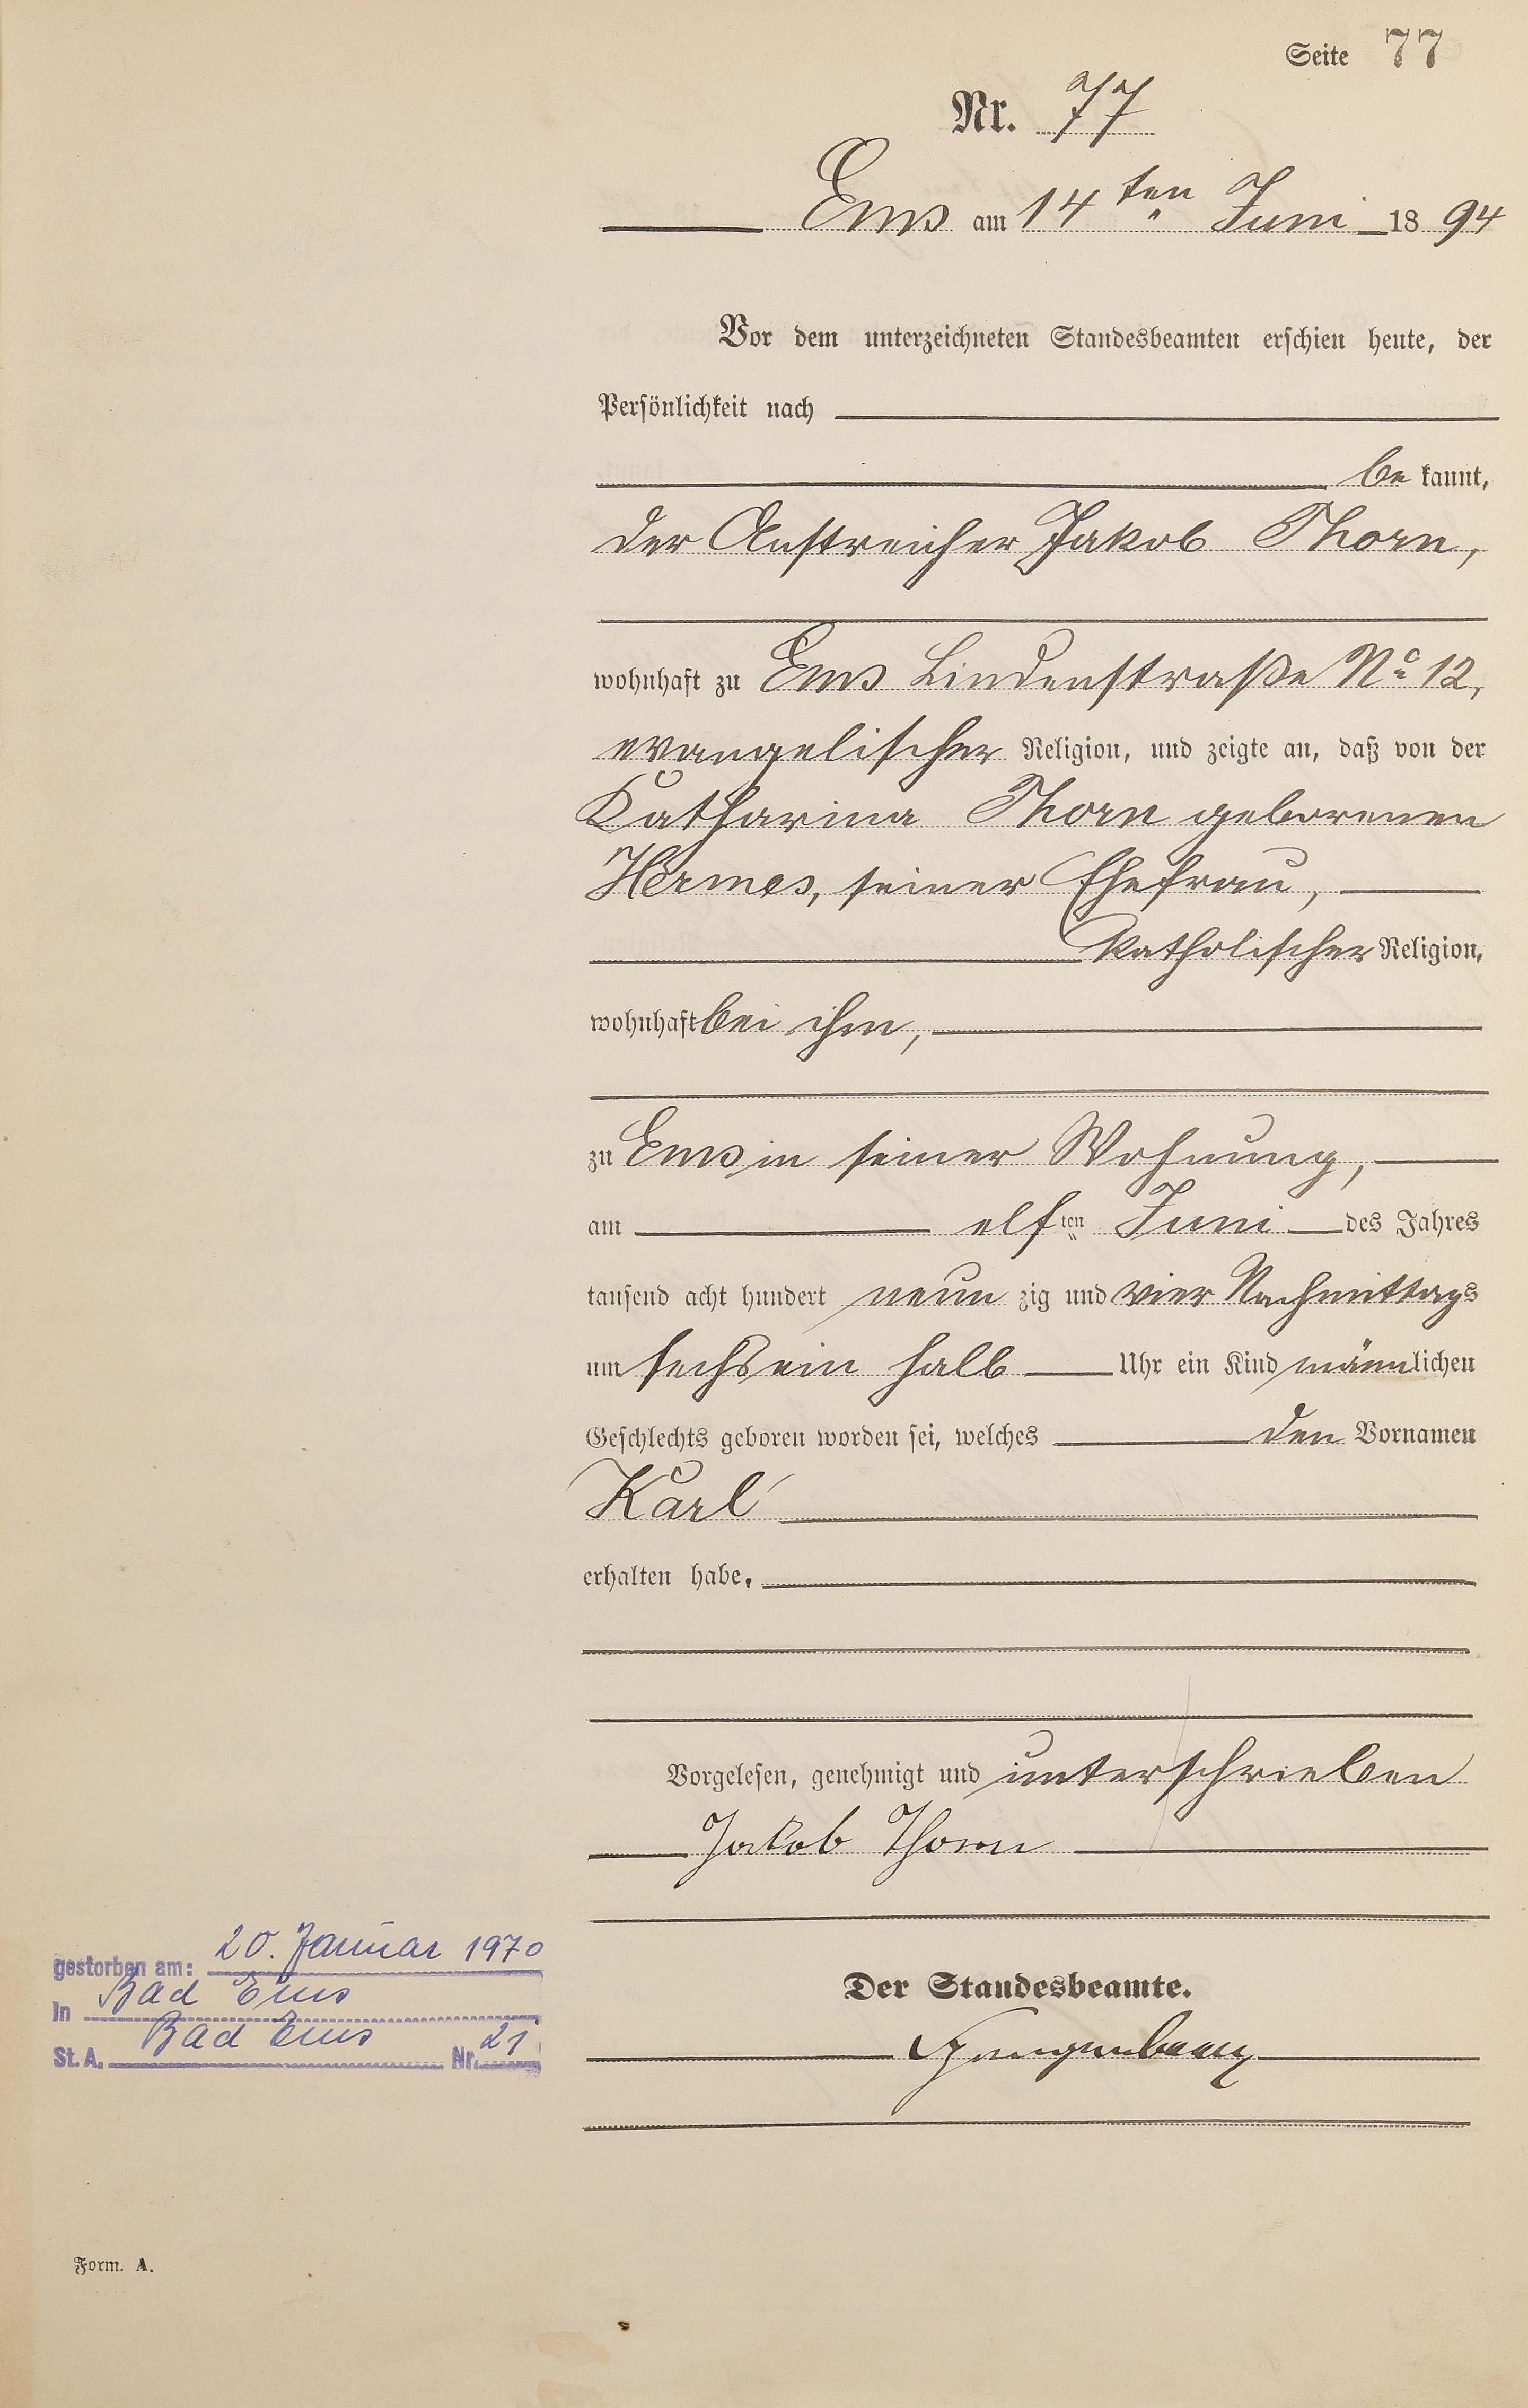 Seite 77
Nr. 77
Ems am 14ten Juni 1894
Vor dem unterzeichneten Standesbeamten erschien heute, der
Persönlichkeit nach
be kannt,
der Anstreicher Jakob Thorn,
wohnhaft zu Ems Lindenstraße No 12,
evangelischer Religion, und zeigte an, daß von der
Katharina Thorn geborenen
Hermes, seiner Ehefrau,
katholischer Religion,
wohnhaft bei ihm,
zu Ems in seiner Wohnung,
am elften Juni des Jahres
tausend acht hundert neun zig und vier Nachmittags
um sechs ein halb Uhr ein Kind männlichen
Geschlechts geboren worden sei, welches den Vornamen
Karl
erhalten habe.
Vorgelesen, genehmigt und unterschrieben
Jakob Thorn
Der Standesbeamte.
gestorben am: 20. Januar 1970
in Bad Ems
St. A. Bad Ems Nr. 21
Form. A.